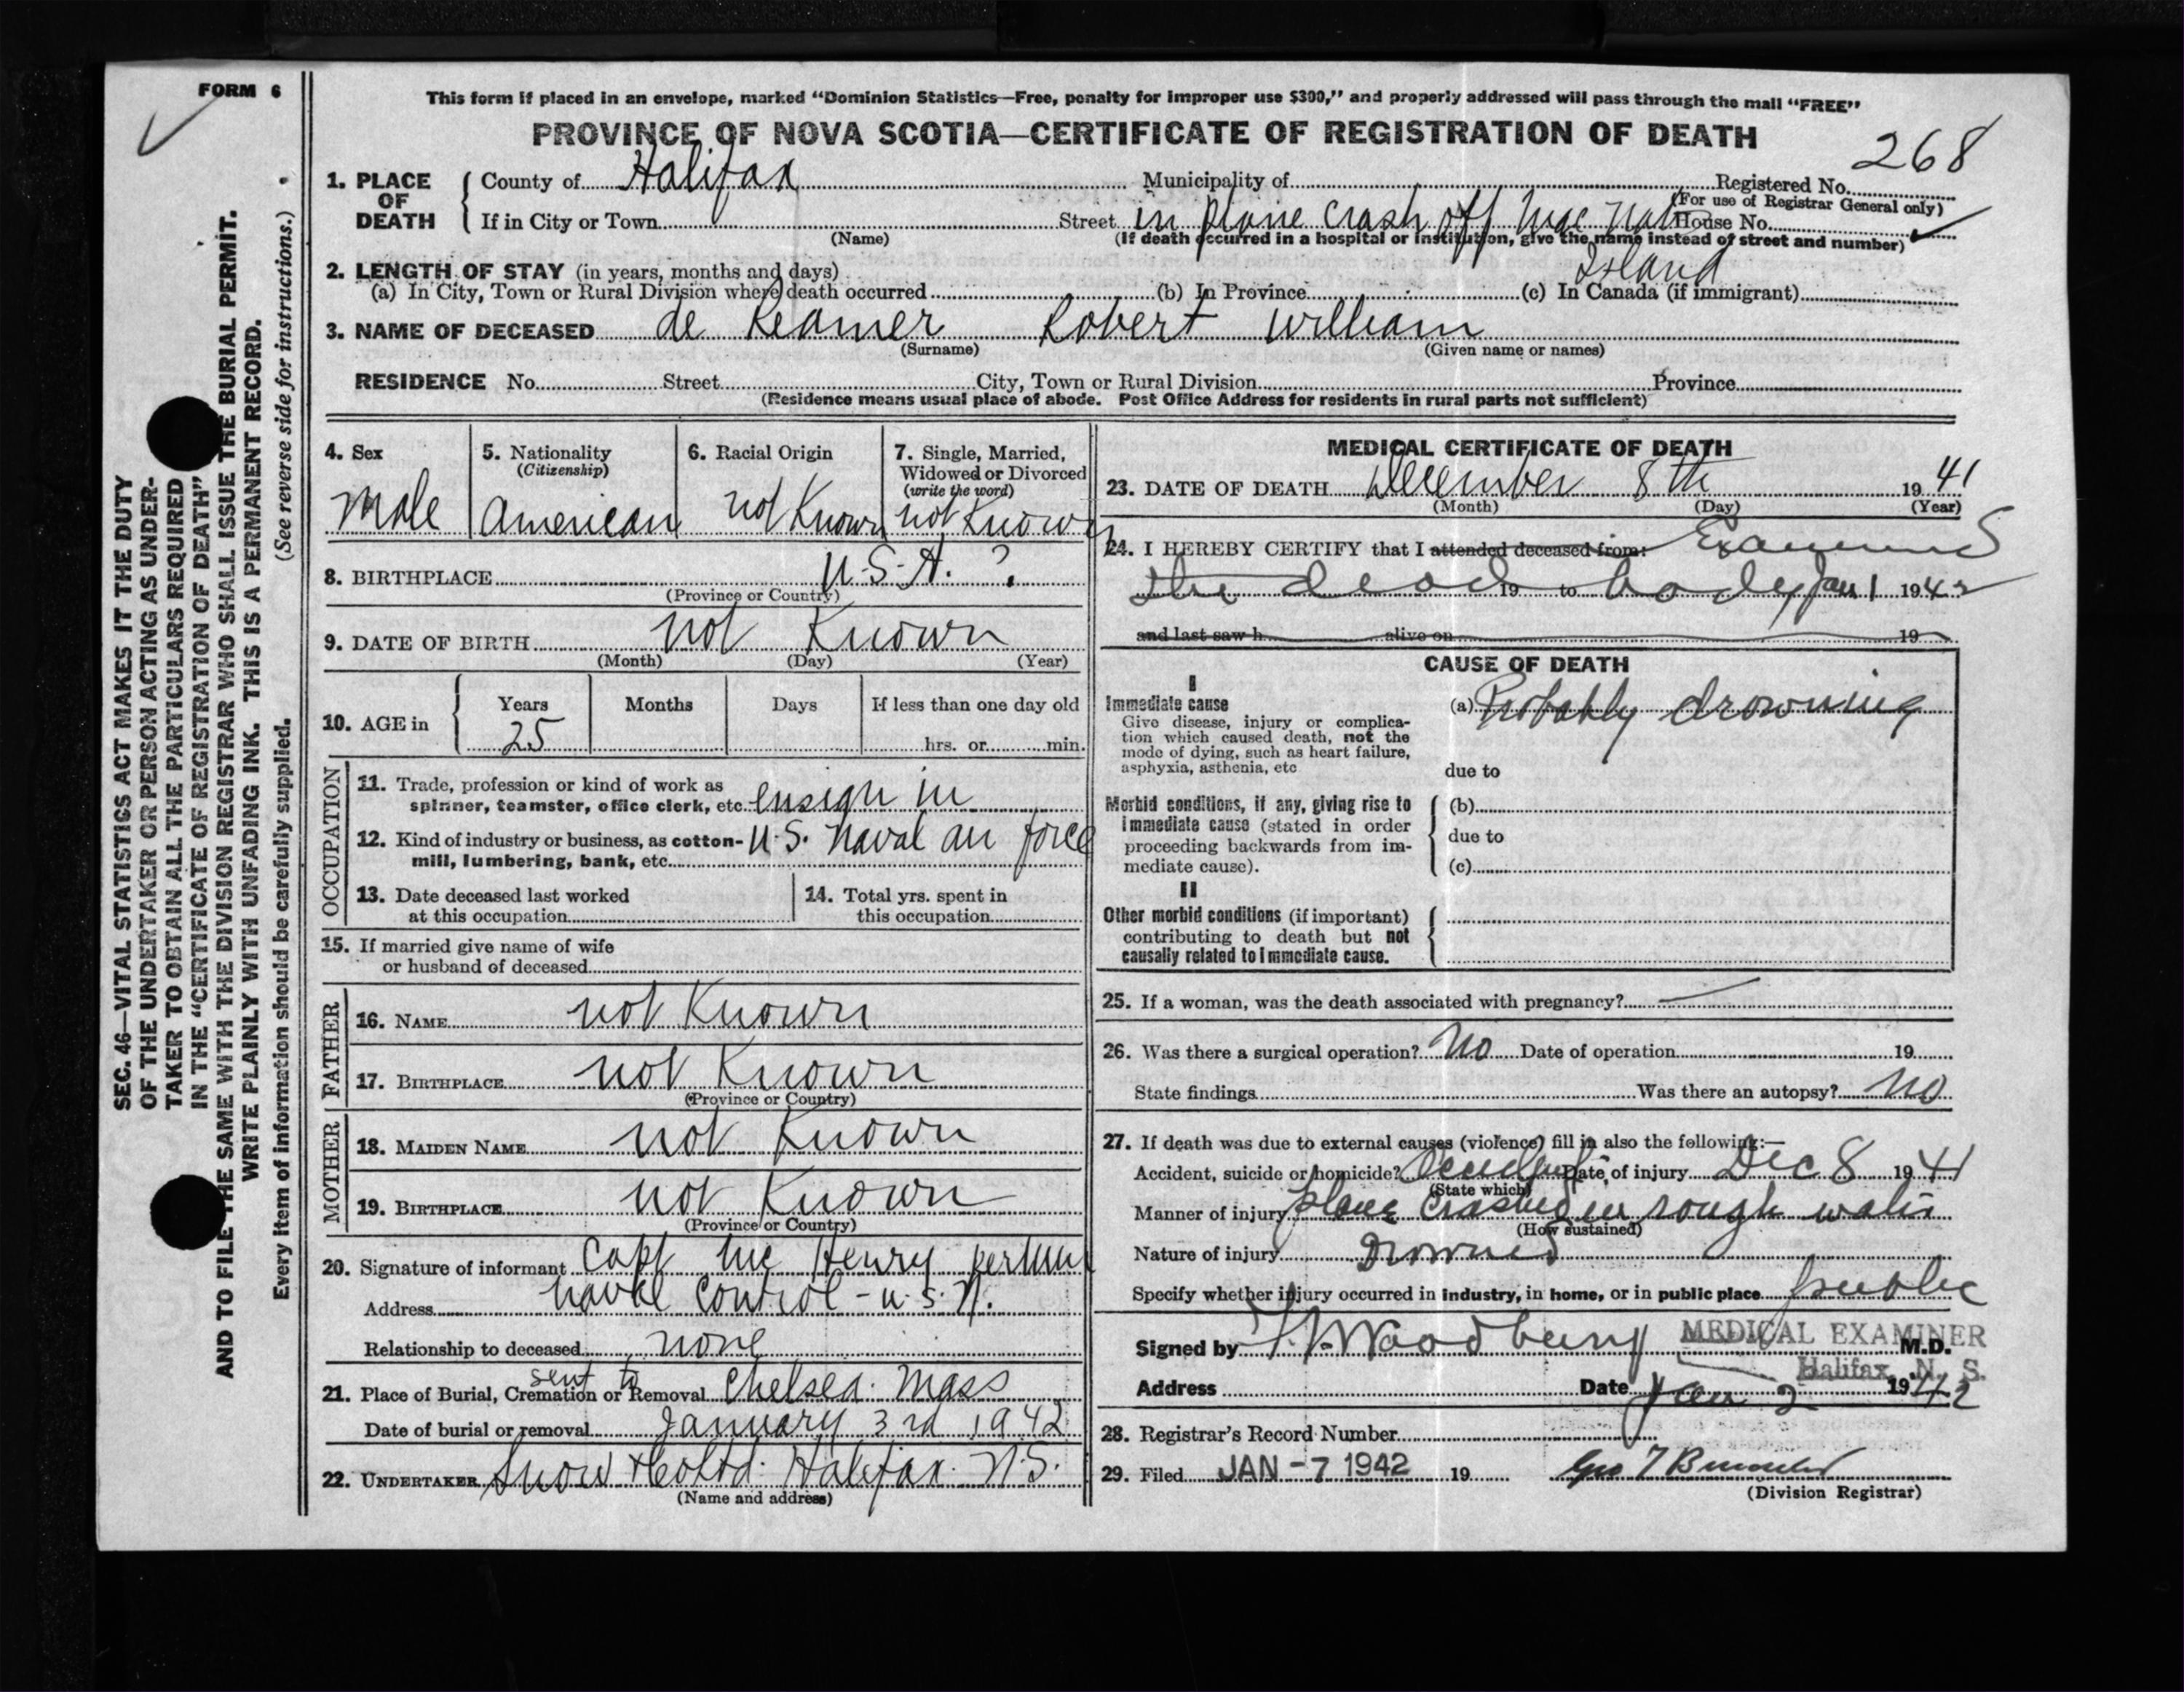 FORM 6
This form if placed in an envelope, marked "Dominion Statistics—Free, penalty for improper use $300," and properly addressed will pass through the mail "FREE"
PROVINCE OF NOVA SCOTIA—CERTIFICATE OF REGISTRATION OF DEATH
268
1. PLACE OF DEATH
County of Halifax Municipality of Registered No.
(For use of Registrar General only)
If in City or Town Street in plane crash off Mac Nab House No.
(Name) (If death occurred in a hospital or institution, give the name instead of street and number)
Island
2. LENGTH OF STAY (in years, months and days)
(a) In City, Town or Rural Division where death occurred (b) In Province (c) In Canada (if immigrant)
3. NAME OF DECEASED de Reamer Robert William
(Surname) (Given name or names)
RESIDENCE No. Street City, Town or Rural Division Province
(Residence means usual place of abode. Post Office Address for residents in rural parts not sufficient)
4. Sex
male
5. Nationality
(Citizenship)
American
6. Racial Origin
not Known
7. Single, Married,
Widowed or Divorced
(write the word)
not Known
8. BIRTHPLACE U.S.A. ?
(Province or Country)
9. DATE OF BIRTH not Known
(Month) (Day) (Year)
10. AGE in Years Months Days If less than one day old
25 hrs. or min.
OCCUPATION
11. Trade, profession or kind of work as
spinner, teamster, office clerk, etc. ensign in
12. Kind of industry or business, as cotton- U.S. naval air force
mill, lumbering, bank, etc.
13. Date deceased last worked
at this occupation
14. Total yrs. spent in
this occupation
15. If married give name of wife
or husband of deceased
FATHER
16. NAME not Known
17. BIRTHPLACE not Known
(Province or Country)
MOTHER
18. MAIDEN NAME not Known
19. BIRTHPLACE not Known
(Province or Country)
20. Signature of informant Capt Mc Henry
Address naval Control - U.S.N.
Relationship to deceased none
sent to
21. Place of Burial, Cremation or Removal Chelsea. Mass
Date of burial or removal January 3rd 1942
22. UNDERTAKER Snow & Co Ltd. Halifax. N.S.
(Name and address)
MEDICAL CERTIFICATE OF DEATH
23. DATE OF DEATH December 8th 1941
(Month) (Day) (Year)
24. I HEREBY CERTIFY that I attended deceased from: Examined
the dead 19 to body Jan 1 1942
and last saw h alive on 19
CAUSE OF DEATH
I
Immediate cause
Give disease, injury or complica-
tion which caused death, not the
mode of dying, such as heart failure,
asphyxia, asthenia, etc
(a) Probably drowning
due to
Morbid conditions, if any, giving rise to
immediate cause (stated in order
proceeding backwards from im-
mediate cause).
(b)
due to
(c)
II
Other morbid conditions (if important)
contributing to death but not
causally related to immediate cause.
25. If a woman, was the death associated with pregnancy?
26. Was there a surgical operation? No Date of operation 19
State findings Was there an autopsy? No
27. If death was due to external causes (violence) fill in also the following:—
Accident, suicide or homicide? Accident Date of injury Dec 8 1941
(State which)
Manner of injury plane crashed in rough water
(How sustained)
Nature of injury Drowned
Specify whether injury occurred in industry, in home, or in public place public
Signed by Woodbury MEDICAL EXAMINER M.D.
Halifax, N. S.
Address Date Jan 2 1942
28. Registrar's Record Number
29. Filed JAN -7 1942 19
(Division Registrar)
SEC. 46—VITAL STATISTICS ACT MAKES IT THE DUTY
OF THE UNDERTAKER OR PERSON ACTING AS UNDER-
TAKER TO OBTAIN ALL THE PARTICULARS REQUIRED
IN THE "CERTIFICATE OF REGISTRATION OF DEATH"
AND TO FILE THE SAME WITH THE DIVISION REGISTRAR WHO SHALL ISSUE THE BURIAL PERMIT.
WRITE PLAINLY WITH UNFADING INK. THIS IS A PERMANENT RECORD.
Every item of information should be carefully supplied. (See reverse side for instructions.)